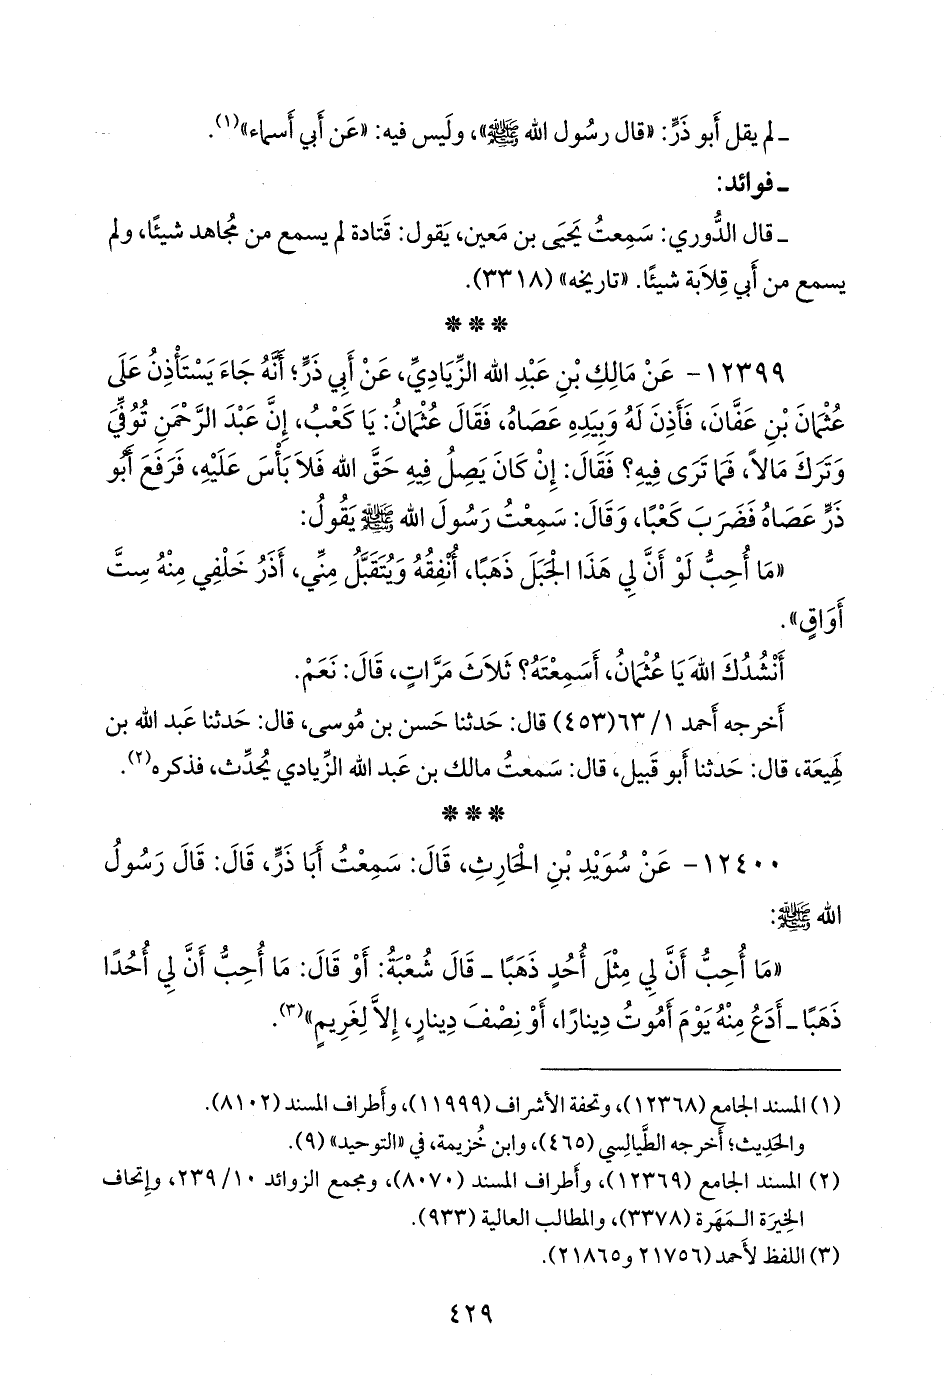 ـ لم يقل أَبو ذَرٍّ: «قال رسُول الله ﷺ»، ولَيس فيه: «عَن أبي أَسماء»(١).
ـ فوائد:
ـ قال الدُّوري: سَمِعتُ يَحيَى بن مَعين، يَقول: قَتادة لم يسمع من مُجاهد شيئًا، ولم
يسمع من أَبي قِلاَبة شيئًا. «تاريخه» (٣٣١٨).
* * *
١٢٣٩٩- عَنْ مَالِكِ بْنِ عَبْدِ الله الزِّيَادِيِّ، عَنْ أَبِي ذَرٍّ؛ أَنَّهُ جَاءَ يَسْتَأْذِنُ عَلَى
عُثْمَانَ بْنِ عَفَّانَ، فَأَذِنَ لَهُ وَبِيَدِهِ عَصَاهُ، فَقَالَ عُثْمَانُ: يَا كَعْبُ، إِنَّ عَبْدَ الرَّحْمَنِ تُوُفِّيَ
وَتَرَكَ مَالاً، فَمَا تَرَى فِيهِ؟ فَقَالَ: إِنْ كَانَ يَصِلُ فِيهِ حَقَّ الله فَلاَ بَأْسَ عَلَيْهِ، فَرَفَعَ أَبُو
ذَرٍّ عَصَاهُ فَضَرَبَ كَعْبًا، وَقَالَ: سَمِعْتُ رَسُولَ الله ﷺ يَقُولُ:
«مَا أُحِبُّ لَوْ أَنَّ لِي هَذَا الْجَبَلَ ذَهَبًا، أُنْفِقُهُ وَيُتَقَبَّلُ مِنِّي، أَذَرُ خَلْفِي مِنْهُ سِتَّ
أَوَاقٍ».
أَنْشُدُكَ اللهَ يَا عُثْمَانُ، أَسَمِعْتَهُ؟ ثَلاَثَ مَرَّاتٍ، قَالَ: نَعَمْ.
أَخرجه أَحمد ١/ ٦٣ (٤٥٣) قال: حَدثنا حَسن بن مُوسى، قال: حَدثنا عَبد الله بن
لَهِيعَة، قال: حَدثنا أَبو قَبيل، قال: سَمعتُ مالك بن عَبد الله الزِّيادي يُحدِّث، فذكره(٢).
* * *
١٢٤٠٠- عَنْ سُوَيْدِ بْنِ الْحَارِثِ، قَالَ: سَمِعْتُ أَبَا ذَرٍّ، قَالَ: قَالَ رَسُولُ
الله ﷺ:
«مَا أُحِبُّ أَنَّ لِي مِثْلَ أُحُدٍ ذَهَبًا ـ قَالَ شُعْبَةُ: أَوْ قَالَ: مَا أُحِبُّ أَنَّ لِي أُحُدًا
ذَهَبًا ـ أَدَعُ مِنْهُ يَوْمَ أَمُوتُ دِينَارًا، أَوْ نِصْفَ دِينَارٍ، إِلاَّ لِغَرِيمٍ»(٣).
(١) المسند الجامع (١٢٣٦٨)، وتحفة الأشراف (١١٩٩٩)، وأَطراف المسند (٨١٠٢).
والحَدِيث؛ أَخرجه الطَّيالِسي (٤٦٥)، وابن خُزيمة، في «التوحيد» (٩).
(٢) المسند الجامع (١٢٣٦٩)، وأَطراف المسند (٨٠٧٠)، ومجمع الزوائد ١٠/ ٢٣٩، وإِتحاف
الخِيرَة الـمَهَرة (٣٣٧٨)، والمطالب العالية (٩٣٣).
(٣) اللفظ لأَحمد (٢١٧٥٦ و٢١٨٦٥).
٤٢٩